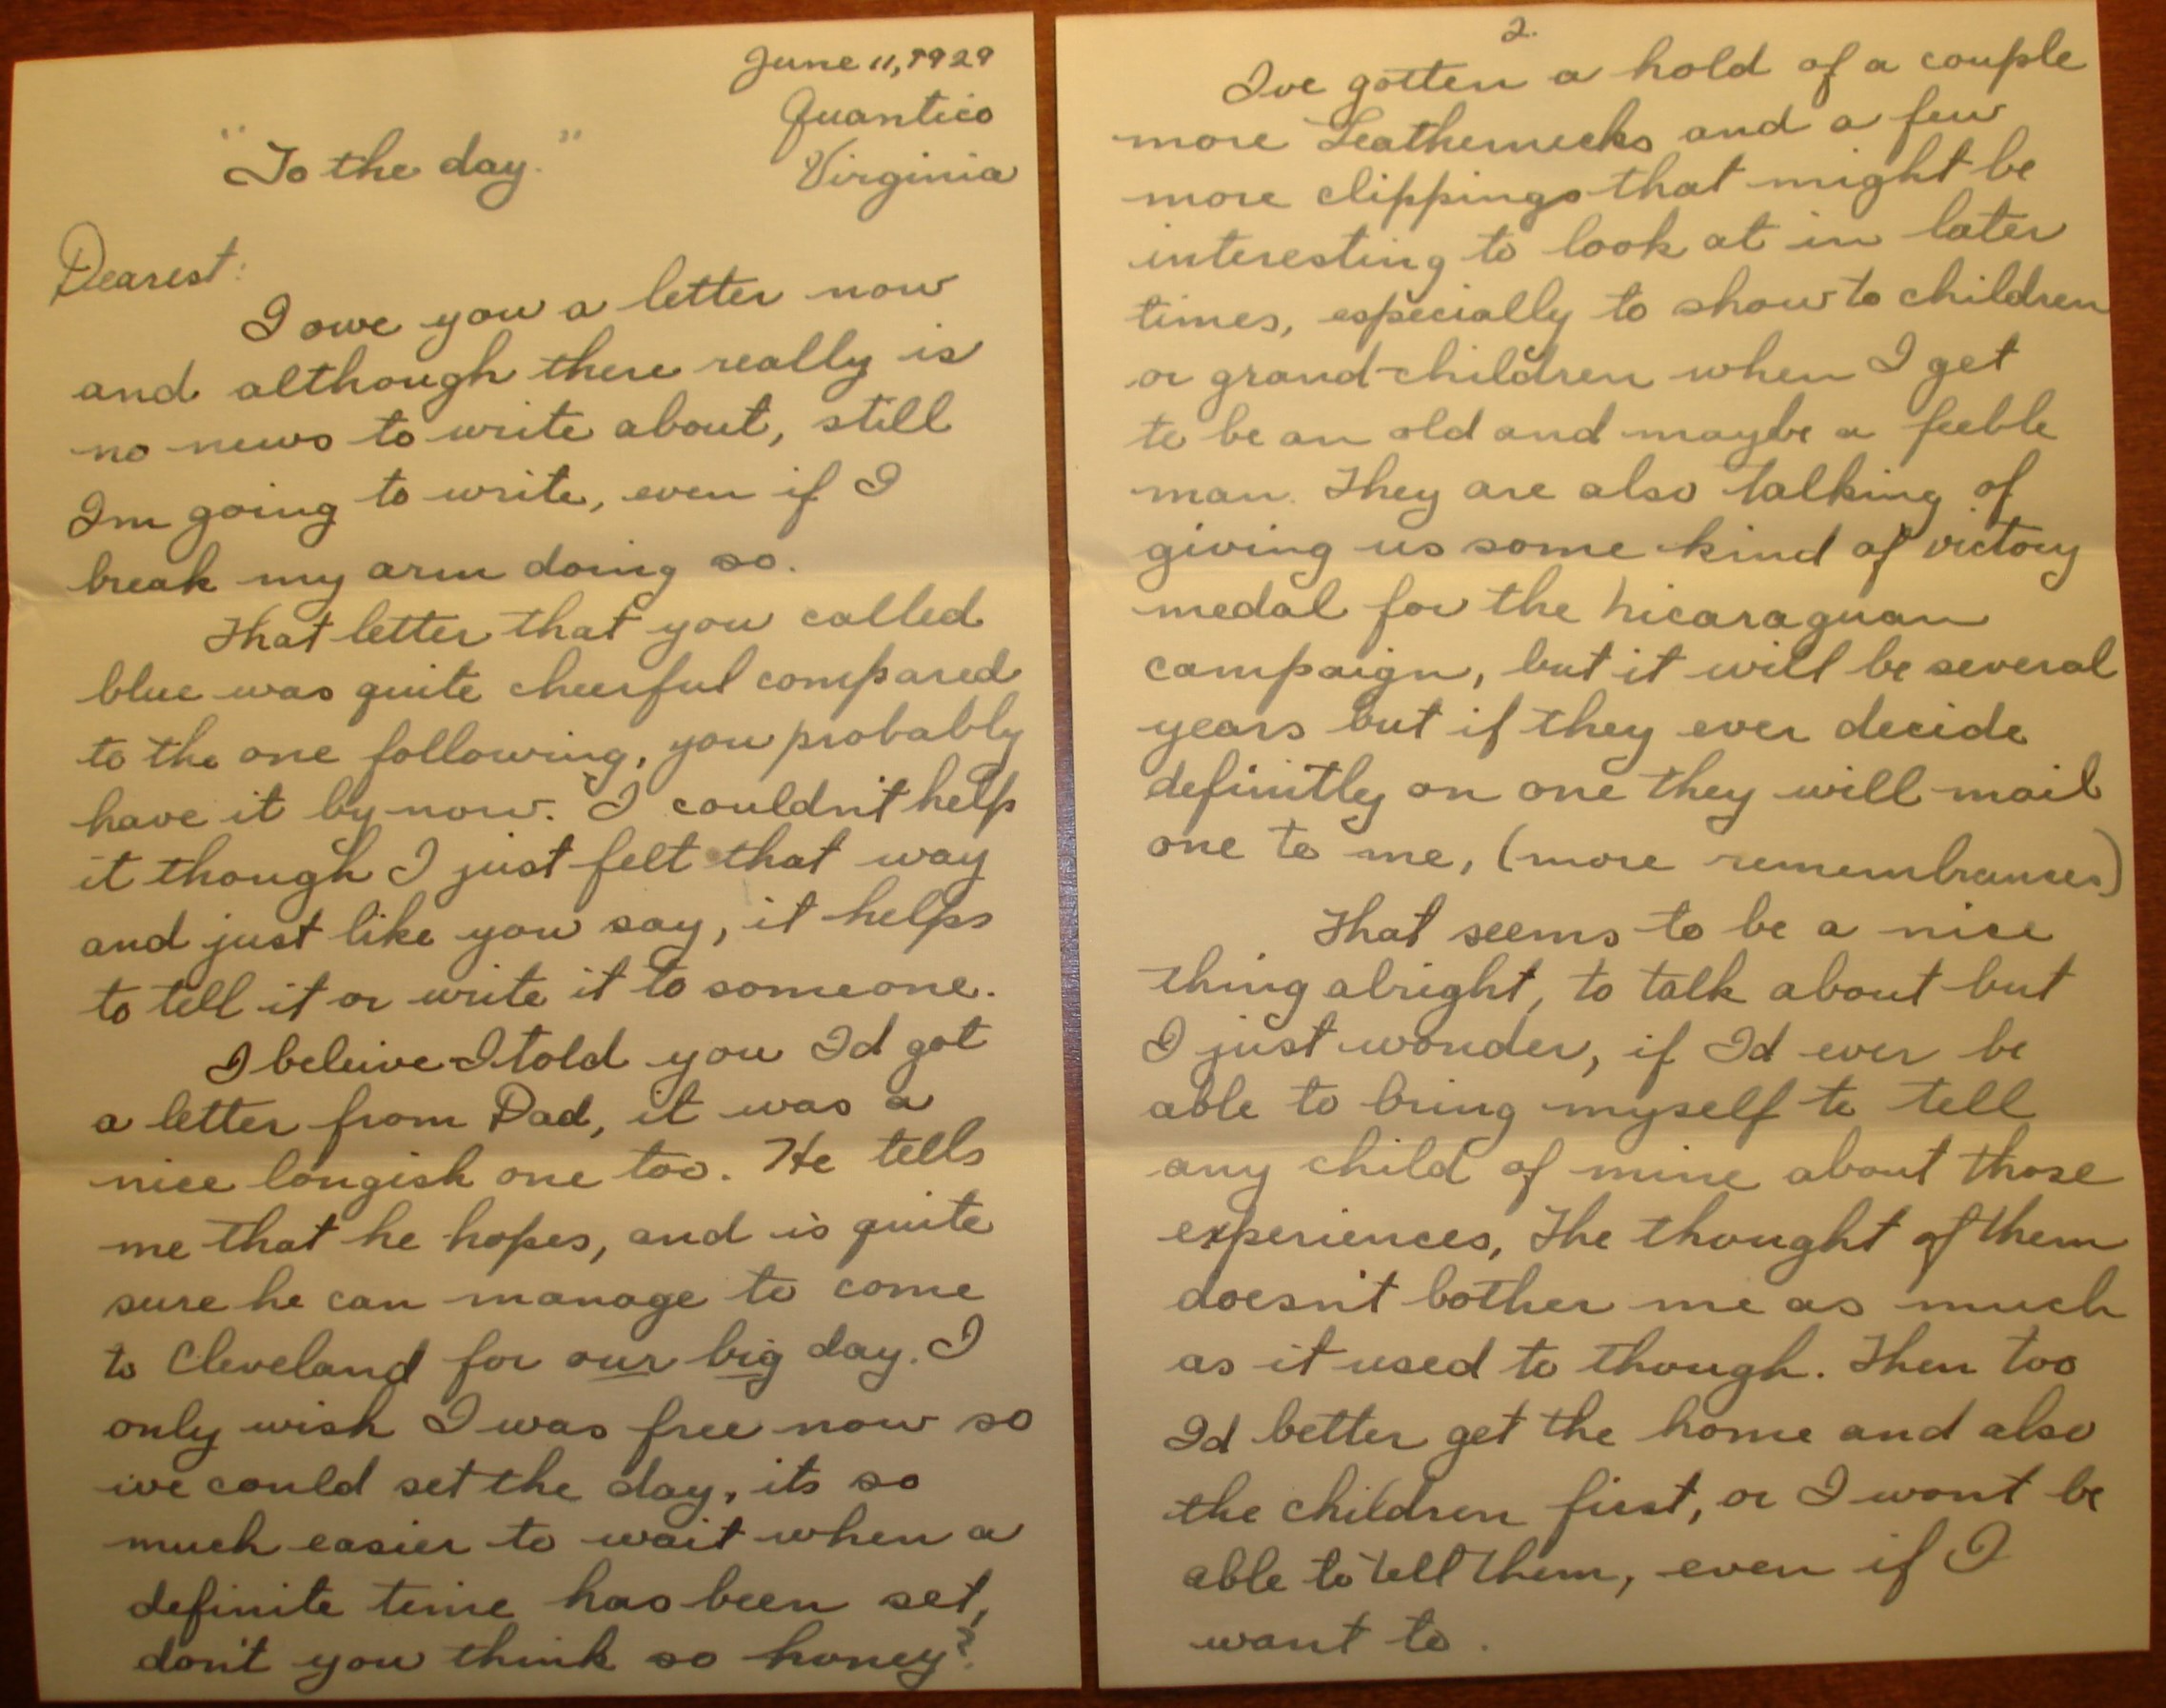 June 11, 1929
Quantico
Virginia
"To the day."
Dearest:
I owe you a letter now
and although there really is
no news to write about, still
Im going to write, even if I
break my arm doing so.
That letter that you called
blue was quite cheerful compared
to the one following, you probably
have it by now. I couldn't help
it though I just felt that way
and just like you say, it helps
to tell it or write it to someone.
I beleive I told you Id got
a letter from Dad, it was a
nice longish one too. He tells
me that he hopes, and is quite
sure he can manage to come
to Cleveland for our big day. I
only wish I was free now so
we could set the day, its so
much easier to wait when a
definite time has been set,
don't you think so honey?
2.
Ive gotten a hold of a couple
more Leathernecks and a few
more clippings that might be
interesting to look at in later
times, especially to show to children
or grand-children when I get
to be an old and maybe a feeble
man. They are also talking of
giving us some kind of victory
medal for the nicaraguan
campaign, but it will be several
years but if they ever decide
definitly on one they will mail
one to me, (more remembrances)
That seems to be a nice
thing alright, to talk about but
I just wonder, if Id ever be
able to bring myself to tell
any child of mine about those
experiences, The thought of them
doesn't bother me as much
as it used to though. Then too
Id better get the home and also
the children first, or I wont be
able to tell them, even if I
want to.